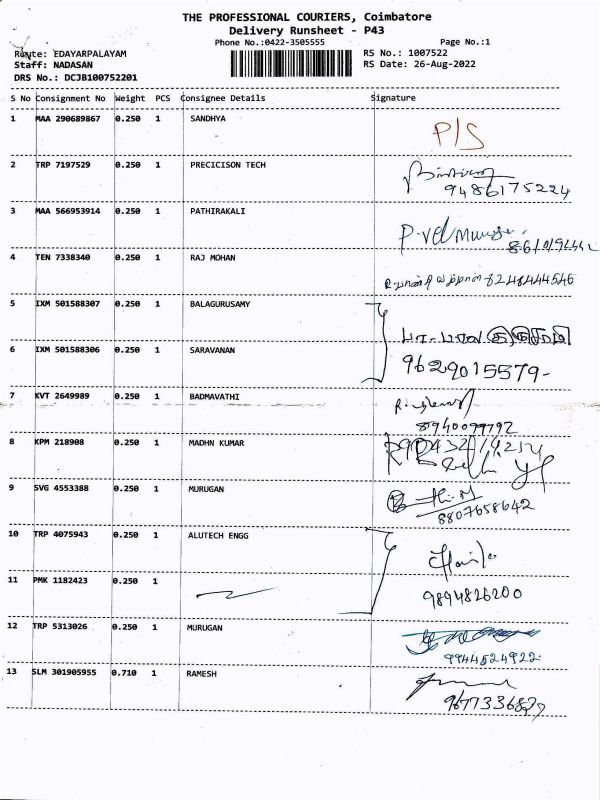 THE PROFESSIONAL COURIERS, Coimbatore
Delivery Runsheet - P43
Phone No.:0422-3505555 Page No.:1
Route: EDAYARPALAYAM RS No.: 1007522
Staff: NADASAN RS Date: 26-Aug-2022
DRS No.: DCJB100752201
S No Consignment No Weight PCS Consignee Details Signature
1 MAA 290689867 0.250 1 SANDHYA P/S
2 TRP 7197529 0.250 1 PRECICISON TECH
9486175224
3 MAA 566953914 0.250 1 PATHIRAKALI
4 TEN 7338340 0.250 1 RAJ MOHAN
5 IXM 501588307 0.250 1 BALAGURUSAMY
6 IXM 501588306 0.250 1 SARAVANAN 9629015579-
7 KVT 2649989 0.250 1 BADMAVATHI
8940099792
8 KPM 218908 0.250 1 MADHN KUMAR
9 SVG 4553388 0.250 1 MURUGAN
8807658642
10 TRP 4075943 0.250 1 ALUTECH ENGG
11 PMK 1182423 0.250 1 9894826200
12 TRP 5313026 0.250 1 MURUGAN
9944524922
13 SLM 301905955 0.710 1 RAMESH